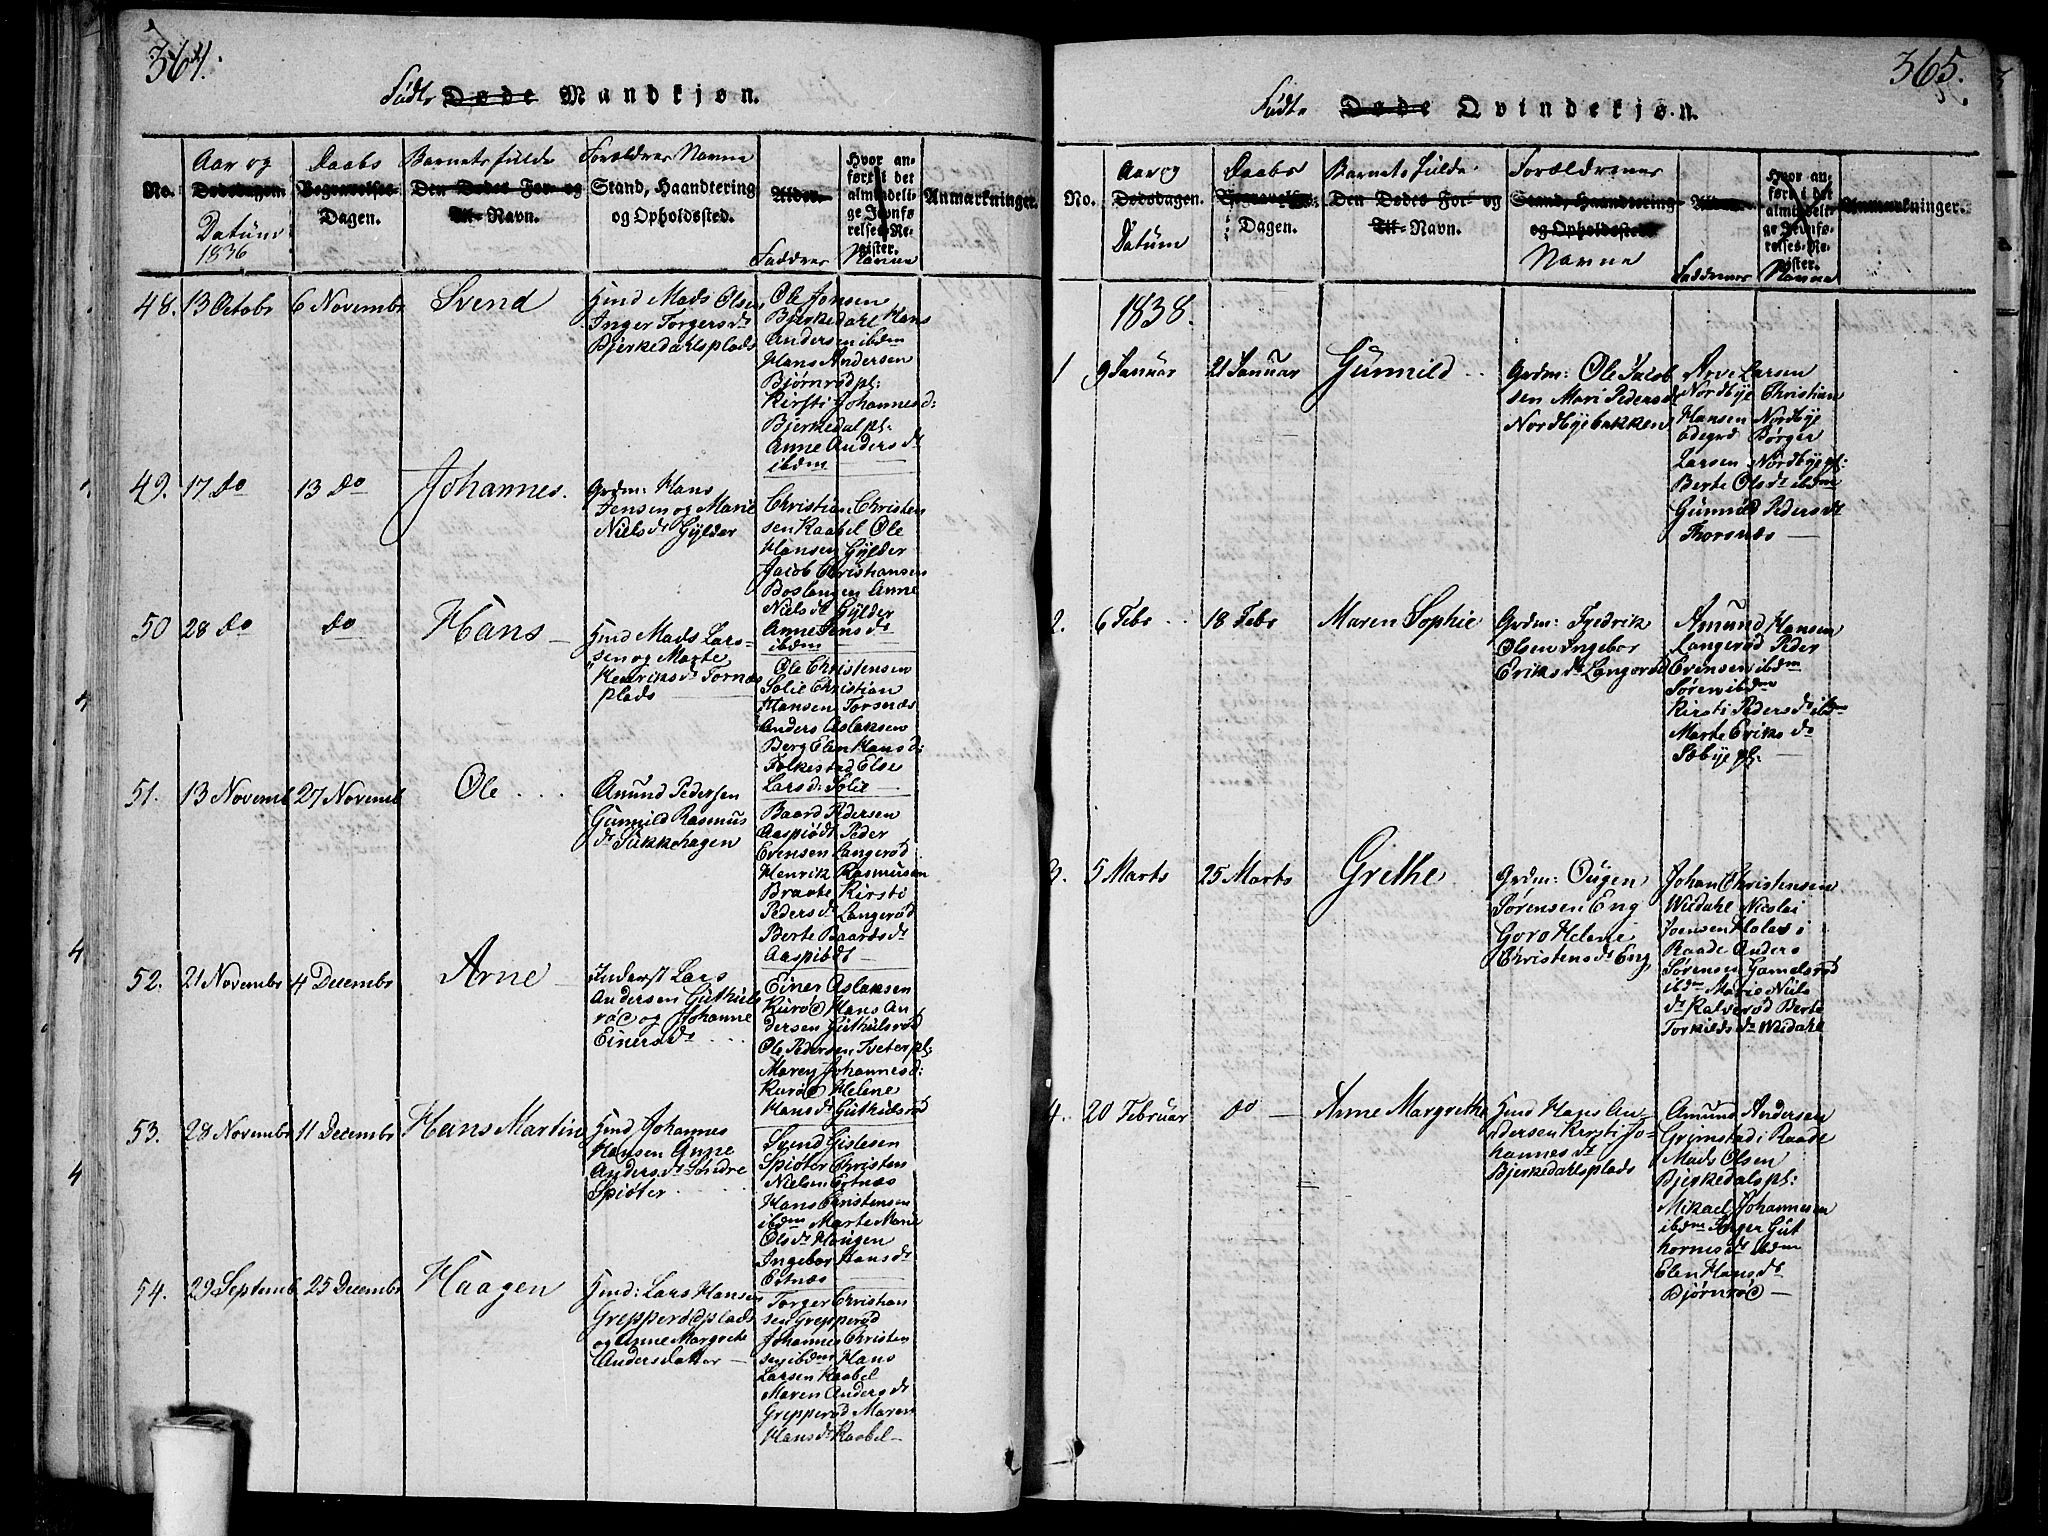 364.
Födte Døde Mandkjøn.
No.
Aar og
Dødsdagen
Datum
1836
Daabs
Begravelses-
Dagen.
Barnets fulde
Den Dødes For- og
Til-Navn.
Forældres Navne
Stand, Haandtering
og Opholdssted.
Alder.
Hvor an-
ført i det
almindeli-
ge Jevnfø-
relses-Re-
gister.
Faddres Navne
Anmærkninger.
48. 13 Octobr 6 Novembr Svend
Huusmd Mads Olsen
Inger Torgersdr
Bjerkedahlsplads
Ole Jonsen
Bjerkedahl Hans
Andersen ibdm
Hans Andersen
Bjørnrødpl:
Kirsti Johannesd:
Bjerkedalpl:
Anne Andersdr
ibdm
49. 17 do 13 do Johannes.
Grdm: Hans
Jensen og Marie
Nielsdr Gylder
Christian Christen
sen Raabel Ole
Hansen Gylder
Jacob Christiansen
Boslangen Anne
Nielsdr Gylder
Anne Jensdr
ibdm
50 28 do do Hans
Hmd Mads Lars-
sen og Marte
Henriksdr Tornæs
plads
Ole Christensen
Solie Christian
Hansen Torsnæs
Anders Aslaksen
Berg Elen Hansd:
Folkestad Else
Larsd: Solie
51. 13 Novemb 27 Novemb Ole
Amund Pedersen
Gunnild Rasmus
dr Sukkehagen
Baard Pedersen
Aaspiødt Peder
Evensen Langerød
Henrik Rasmussen
Braate Kirsti
Pedersdr Langerød
Berte Baardsdr
Aaspiødt
52. 21 Novembr 4 Decembr Arne
Inderst Lars
Andersen Guthuls
rød og Johanne
Einersdr
Einer Aslaksen
Kurød Hans An
dersen Guthulsrød
Ole Pedersen Tveterpl:
Maren Johannesd:
Kurød Helene
Hansdr Guthulsrød
53. 28 Novembr 11 Decembr Hans Martin
Hmd Johannes
Hansen Anne
Andersdr Søndre
Spiøter
Svend Gislesen
Spiøter Christen
Nielsen Ertnæs
Hans Christensen
ibdm Marte Marie
Olsdr Haugen
Ingebor Hansdr
Ertnæs
54. 29 Septemb 25 Decembr Haagen
Hmd: Lars Hansen
Grepperødplads
og Anne Margrete
Andersdatter
Torger Christian
sen Grepperød
Johannes Christen
sen ibdm Hans
Larsen Raabel
Maren Andersdr
Grepperød Maren
Hansdr Raabel
365.
Födte Døde Qvindekjøn.
No.
Aar og
Dødsdagen.
Datum
Daabs
Begravelses-
Dagen.
Barnets fulde
Den Dødes For- og
Til-Navn.
Forældrenes
Stand, Haandtering
og Opholdssted
Navne
Alder.
Hvor an-
ført i det
almindeli-
ge Jevnfø-
relses-Re-
gister.
Faddrenes Navne
Anmærkninger.
1838.
1 9 Januar 21 Januar Gunnild
Grdm: Ole Jacob
sen Mari Pedersdr
Nordbyebakken
Arve Larsen
Nordbye Christian
Hansen Nordbye
ødegrd Børger
Larsen Nordbyepl:
Berte Olsdr ibdm
Gunnild Pedersdr
Thorsnæs
2. 6 Febr 18 Febr Maren Sophie
Grdm: Fredrik
Olsen Ingebor
Eriksdr Langerød
Amund Hansen
Langerød Peder
Evensen ibdm
Søren ibdm
Kirsti Pedersdr ibdm
Marte Eriksdr
Sæbye pl:
3. 5 Marts 25 Marts Grethe
Grdm: Ougen
Sørensen Eng
Goro Helene
Christensdr Eng
Johan Christensen
Wildahl Nicolai
Joensen Holas i
Raade Anders
Sørensen Gamelsrød
ibdm Marie Niels
dr Kalverød Berte
Torkildsdr Wildahl
4. 20 Februar do Anne Margrethe
Hmd Hans An-
dersen Kirsti Jo-
hannesdr
Bjerkedahlsplads
Amund Andersen
Grimstad i Raade
Mads Olsen
Bjerkedalspl:
Mikael Johannesen
ibdm Inger Gut
hormsdr ibdm
Elen Hansdr
Bjørnrød